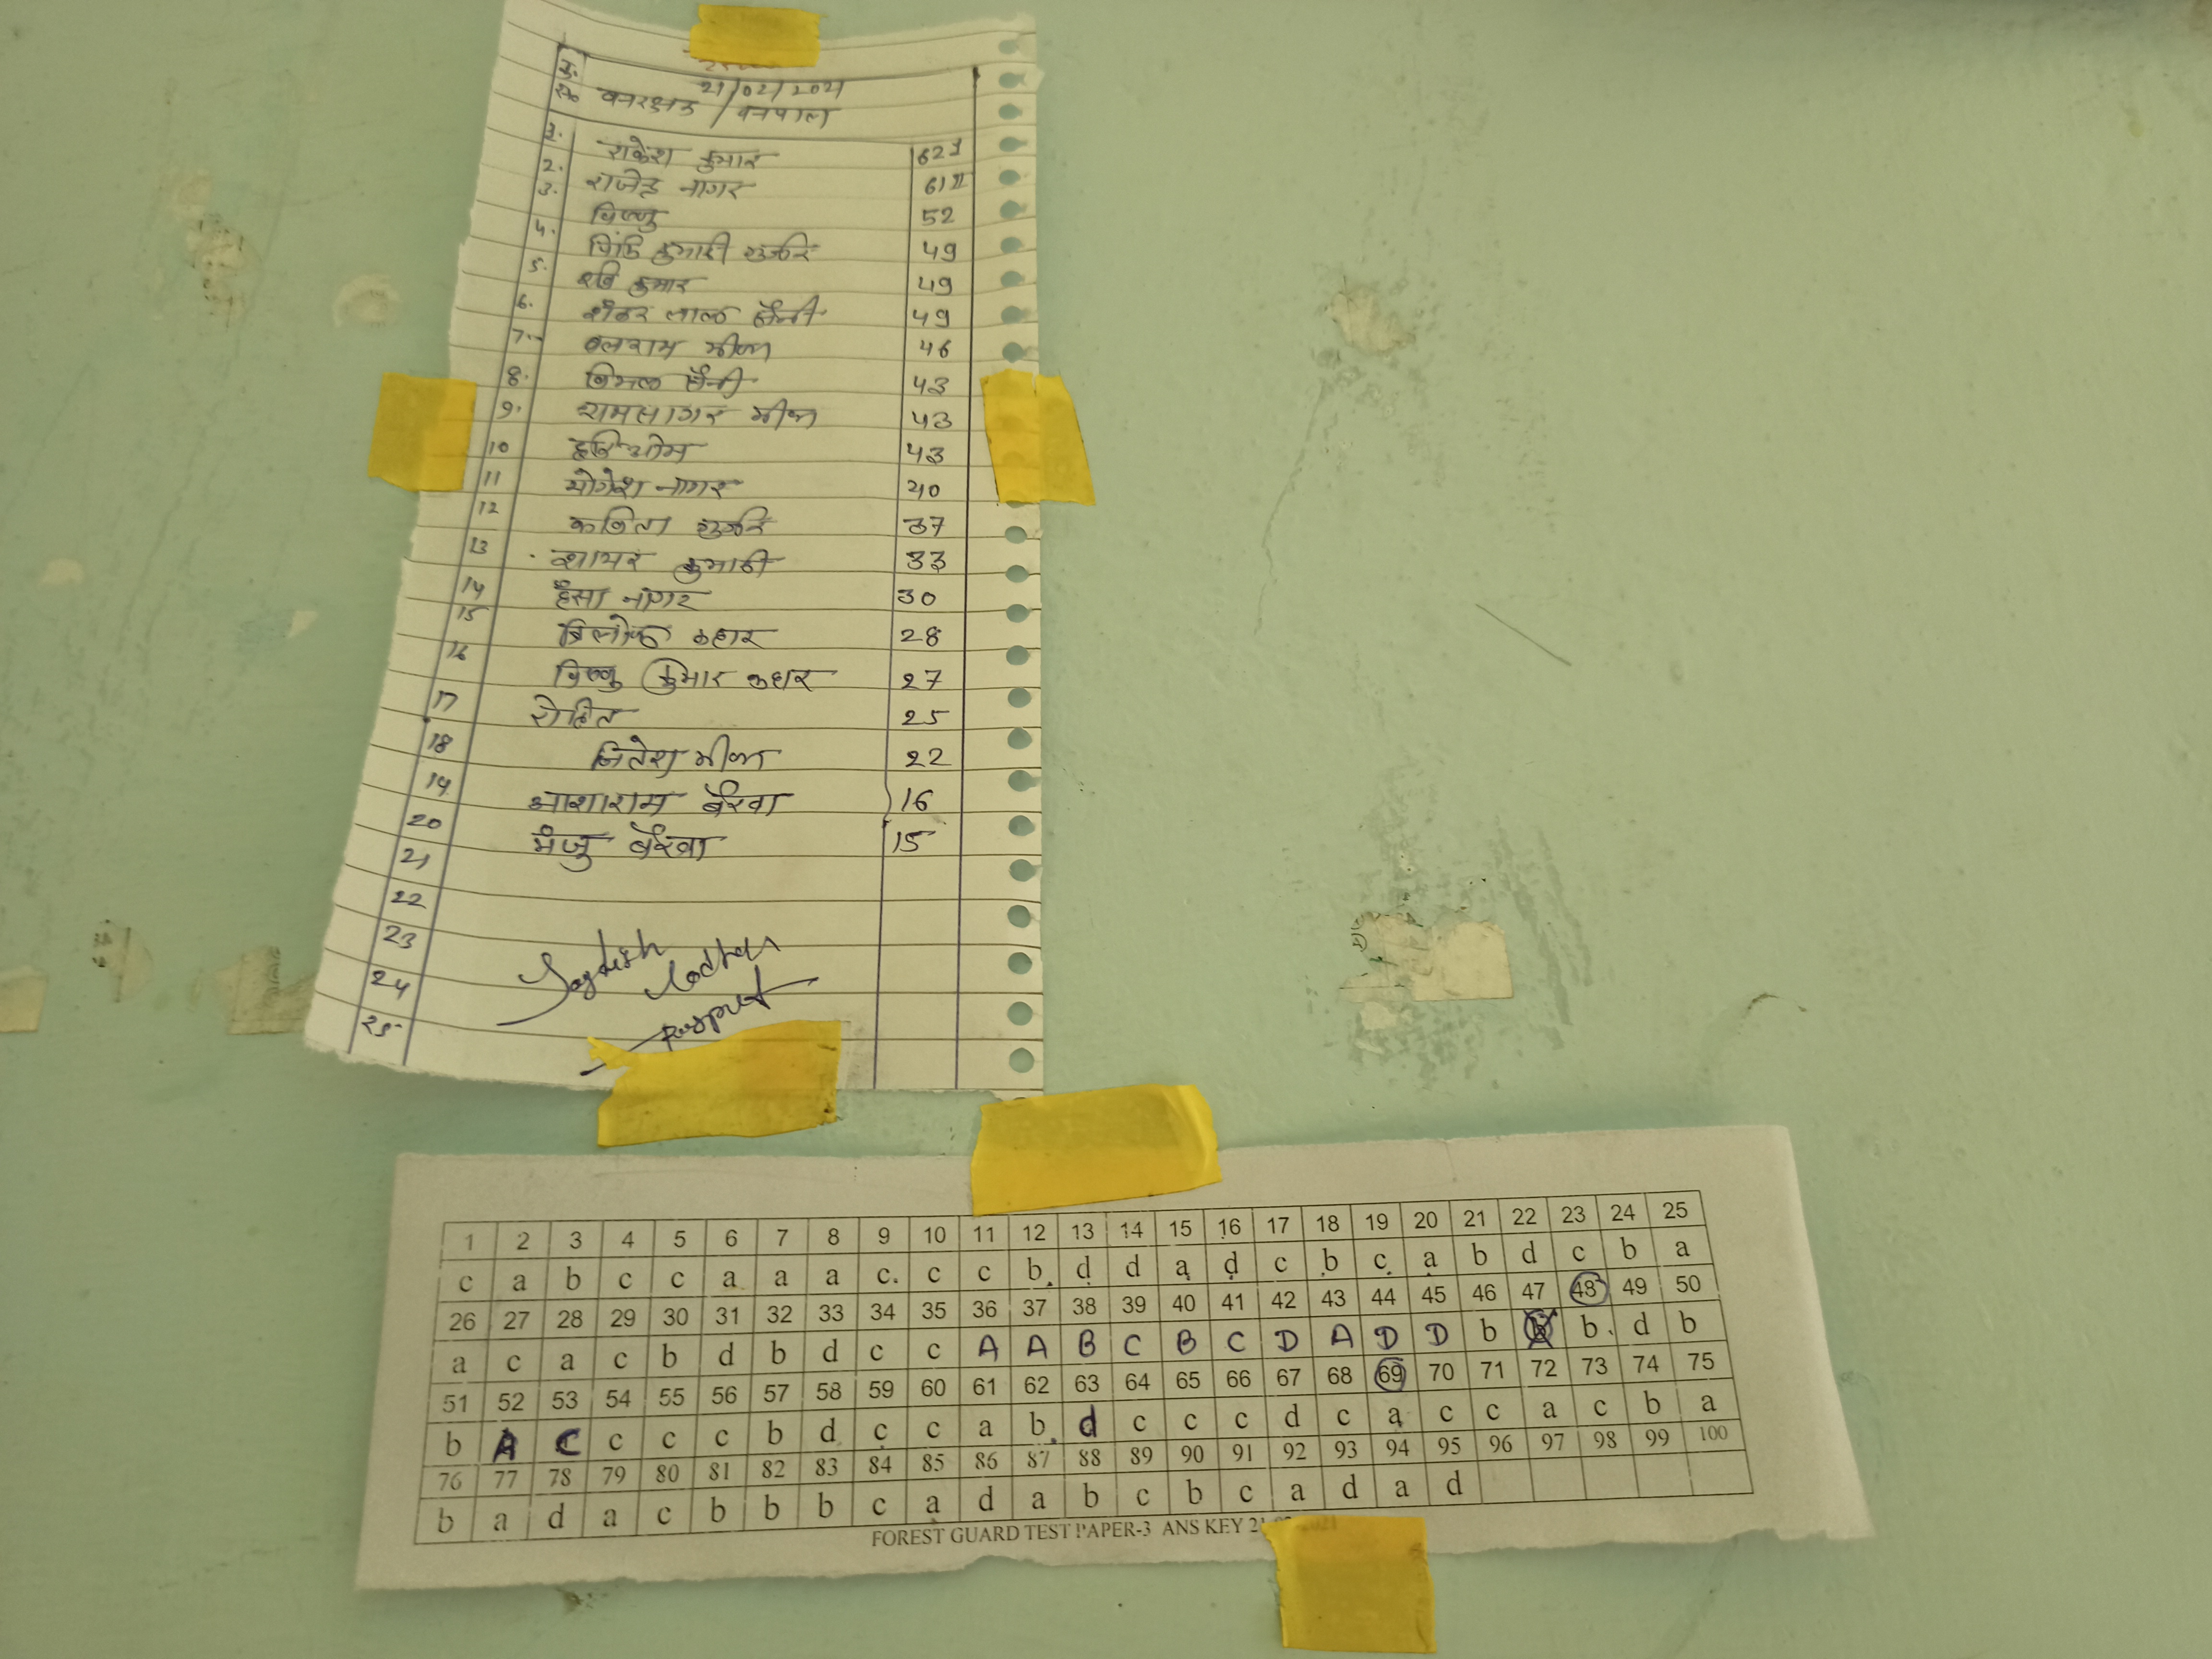 क्र. 21/02/2021
स० वनरक्षक / वनपाल
1. राकेश कुमार 62 I
2. राजेन्द्र नागर 61 II
3. विष्णु 52
4. पिंकि कुमारी गुर्जर 49
5. रवि कुमार 49
6. शंकर लाल सैनी 49
7. बलराम मीणा 46
8. विमल सैनी 43
9. रामसागर मीणा 43
10 हरिओम 43
11 योगेश नागर 40
12 कविता गुर्जर 37
13 शायर कुमारी 33
14 हंसा नागर 30
15 त्रिलोक कहार 28
16 विष्णु कुमार कहार 27
17 रोहित 25
18 जितेश मीणा 22
19 आशाराम बैरवा 16
20 मंजु बैरवा 15
21
22
23
24
25
Jagdish
1 2 3 4 5 6 7 8 9 10 11 12 13 14 15 16 17 18 19 20 21 22 23 24 25
c a b c c a a a c. c c b. d d a d c b c a b d c b a
26 27 28 29 30 31 32 33 34 35 36 37 38 39 40 41 42 43 44 45 46 47 48 49 50
a c a c b d b d c c A A B C B C D A D D b b. d b
51 52 53 54 55 56 57 58 59 60 61 62 63 64 65 66 67 68 69 70 71 72 73 74 75
b A C c c c b d c c a b. d c c c d c a c c a c b a
76 77 78 79 80 81 82 83 84 85 86 87 88 89 90 91 92 93 94 95 96 97 98 99 100
b a d a c b b b c a d a b c b c a d a d
FOREST GUARD TEST PAPER-3 ANS KEY